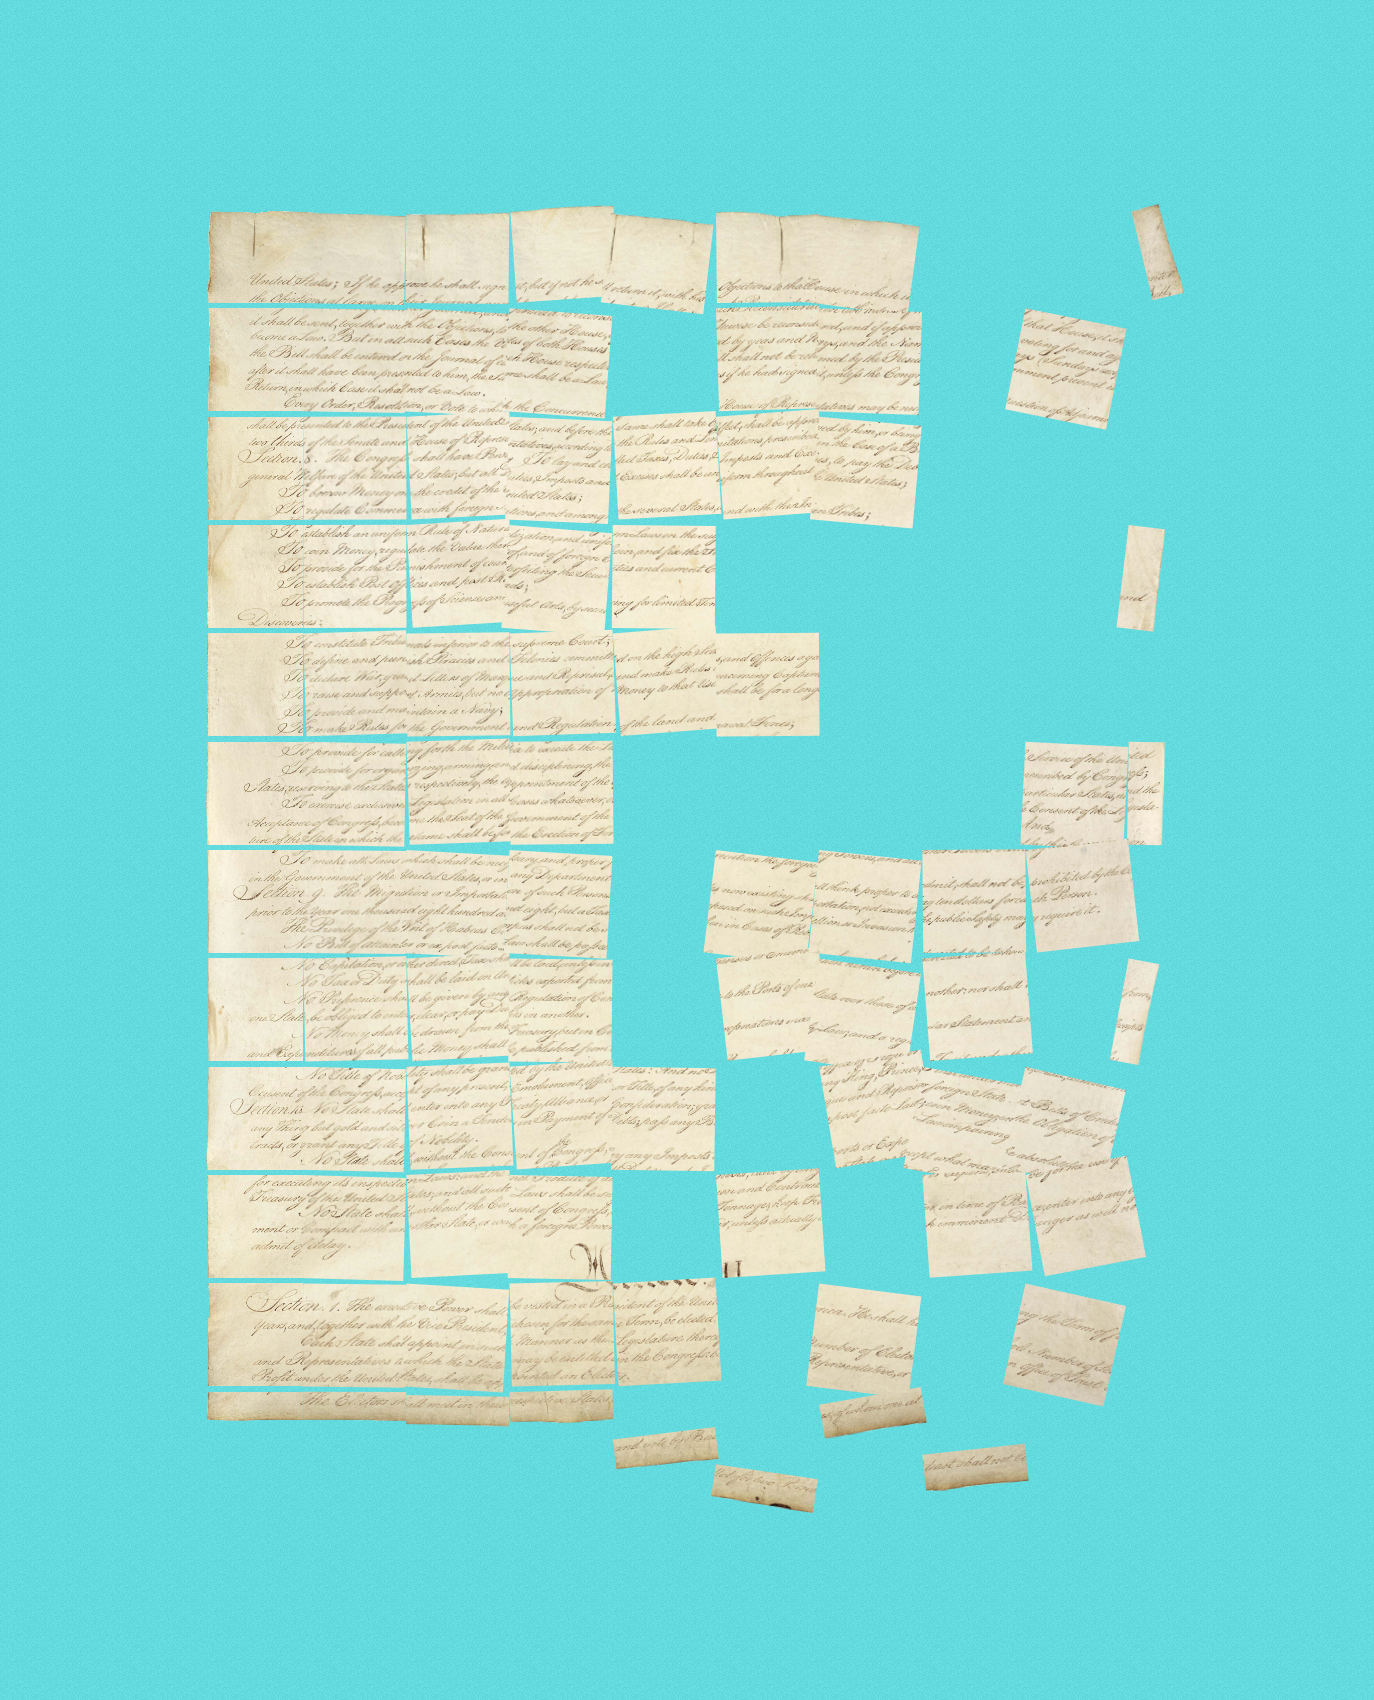 United States; If he approve he shall sign it, but if not he shall return it, with his Objections to that House in which it
the Objections at large on their Journal and
it shall be sent, together with the Objections, to the other House, House be reconsidered, and if approved that House, it
became a Law. But in all such Cases the Votes of both Houses d by yeas and Nays, and the Names voting for and
the Bill shall be entered on the Journal of each House respectively ll shall not be returned by the President ys (Sundays
after it shall have been presented to him, the Same shall be a Law s if he had signed it, unless the Congress rnment prevent
Return, in which Case it shall not be a Law.
Every Order, Resolution, or Vote to which the Concurrence House of Representatives may be question of Adjournment
shall be presented to the President of the United States; and before the Same shall take Effect, shall be approved by him, or being
two thirds of the Senate and House of Representatives, according to the Rules and Limitations prescribed in the Case of a B
Section. 8. The Congress shall have Power To lay and collect Taxes, Duties, Imposts and Excises, to pay the Deb
general Welfare of the United States; but all Duties, Imposts and Excises shall be uniform throughout the United States;
To borrow Money on the credit of the United States;
To regulate Commerce with foreign Nations, and among the several States, and with the Indian Tribes;
To establish an uniform Rule of Naturalization, and uniform Laws on the su
To coin Money, regulate the Value thereof, and of foreign Coin, and fix the St
To provide for the Punishment of counterfeiting the Securities and current C
To establish Post Offices and post Roads;
To promote the Progress of Science and useful Arts, by securing for limited Times and
Discoveries;
To constitute Tribunals inferior to the supreme Court;
To define and punish Piracies and Felonies committed on the high Seas, and Offences aga
To declare War, grant Letters of Marque and Reprisal, and make Rules concerning Captures
To raise and support Armies, but no Appropriation of Money to that Use shall be for a long
To provide and maintain a Navy;
To make Rules for the Government and Regulation of the land and naval Forces;
To provide for calling forth the Militia to execute the La
To provide for organizing, arming, and disciplining, the Service of the United
States, reserving to the States respectively, the Appointment of the scribed by Congress;
To exercise exclusive Legislation in all Cases whatsoever, particular States, and the
Acceptance of Congress, become the Seat of the Government of the Consent of the Legisla-
ture of the State in which the Same shall be, for the Erection of For And
To make all Laws which shall be necessary and proper ution the foregoing Powers, and all
in the Government of the United States, or in any Department
Section. 9. The Migration or Importation of such Persons s now existing shall think proper to admit, shall not be prohibited by the C
prior to the Year one thousand eight hundred and eight, but a Tax posed on such Importation, not exceeding ten dollars for each Person.
The Privilege of the Writ of Habeas Corpus shall not be when in Cases of Rebellion or Invasion the public Safety may require it.
No Bill of Attainder or ex post facto Law shall be passed
No Capitation, or other direct, Tax shall be laid, unless in Census or Enumeration herein before directed to be taken.
No Tax or Duty shall be laid on Articles exported from
No Preference shall be given by any Regulation of Com to the Ports of one State over those of another: nor shall from,
one State, be obliged to enter, clear, or pay Duties in another.
No Money shall be drawn from the Treasury, but in Co propriations made by Law; and a regular Statement and
and Expenditures of all public Money shall be published from
No Title of Nobility shall be granted by the United States: And no
Consent of the Congress, accept of any present, Emolument, Office, or Title, of any kind ny King, Prince, or foreign State.
Section. 10. No State shall enter into any Treaty, Alliance, or Confederation; grant que and Reprisal; coin Money; emit Bills of Credit
any Thing but gold and silver Coin a Tender in Payment of Debts; pass any B post facto Law, or Law impairing the Obligation of
tracts, or grant any Title of Nobility.
No State shall, without the Consent of the Congress, lay any Imposts ports or Exports, except what may be absolutely
for executing its inspection Laws: and the net Produce of
Treasury of the United States; and all such Laws shall be su on and Controul
No State shall, without the Consent of Congress, Tonnage, keep Tro s, in time of Peace, enter into any
ment or Compact with another State, or with a foreign Power r, unless actually imminent Danger as will no
admit of delay.
Section. 1. The executive Power shall be vested in a President of the Unit rica. He shall ho ng the Term of
Years, and, together with the Vice President, chosen for the same Term, be elected,
Each State shall appoint, in such Manner as the Legislature thereof Number of Electo al Number of
and Representatives to which the State may be entitled in the Congress: b Representative, or an Office of Trust
Profit under the United States, shall be appointed an Elector.
The Electors shall meet in their respective States, and vote by Ballot two Persons, of whom one at least shall not be